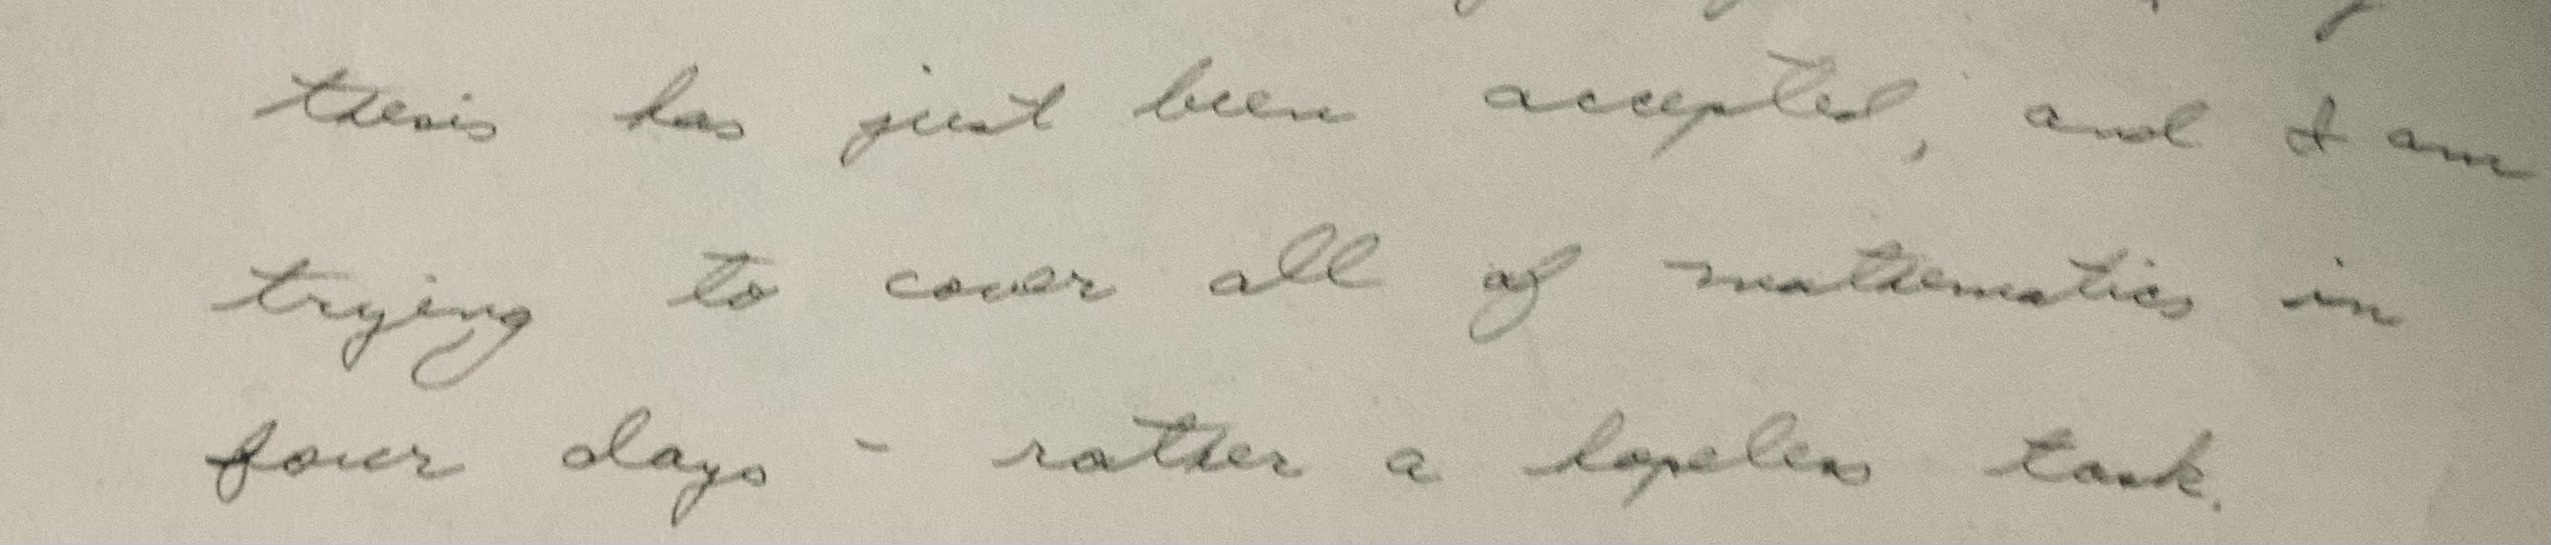 thesis has just been accepted, and I am
trying to cover all of mathematics in
four days - rather a hopeless task.